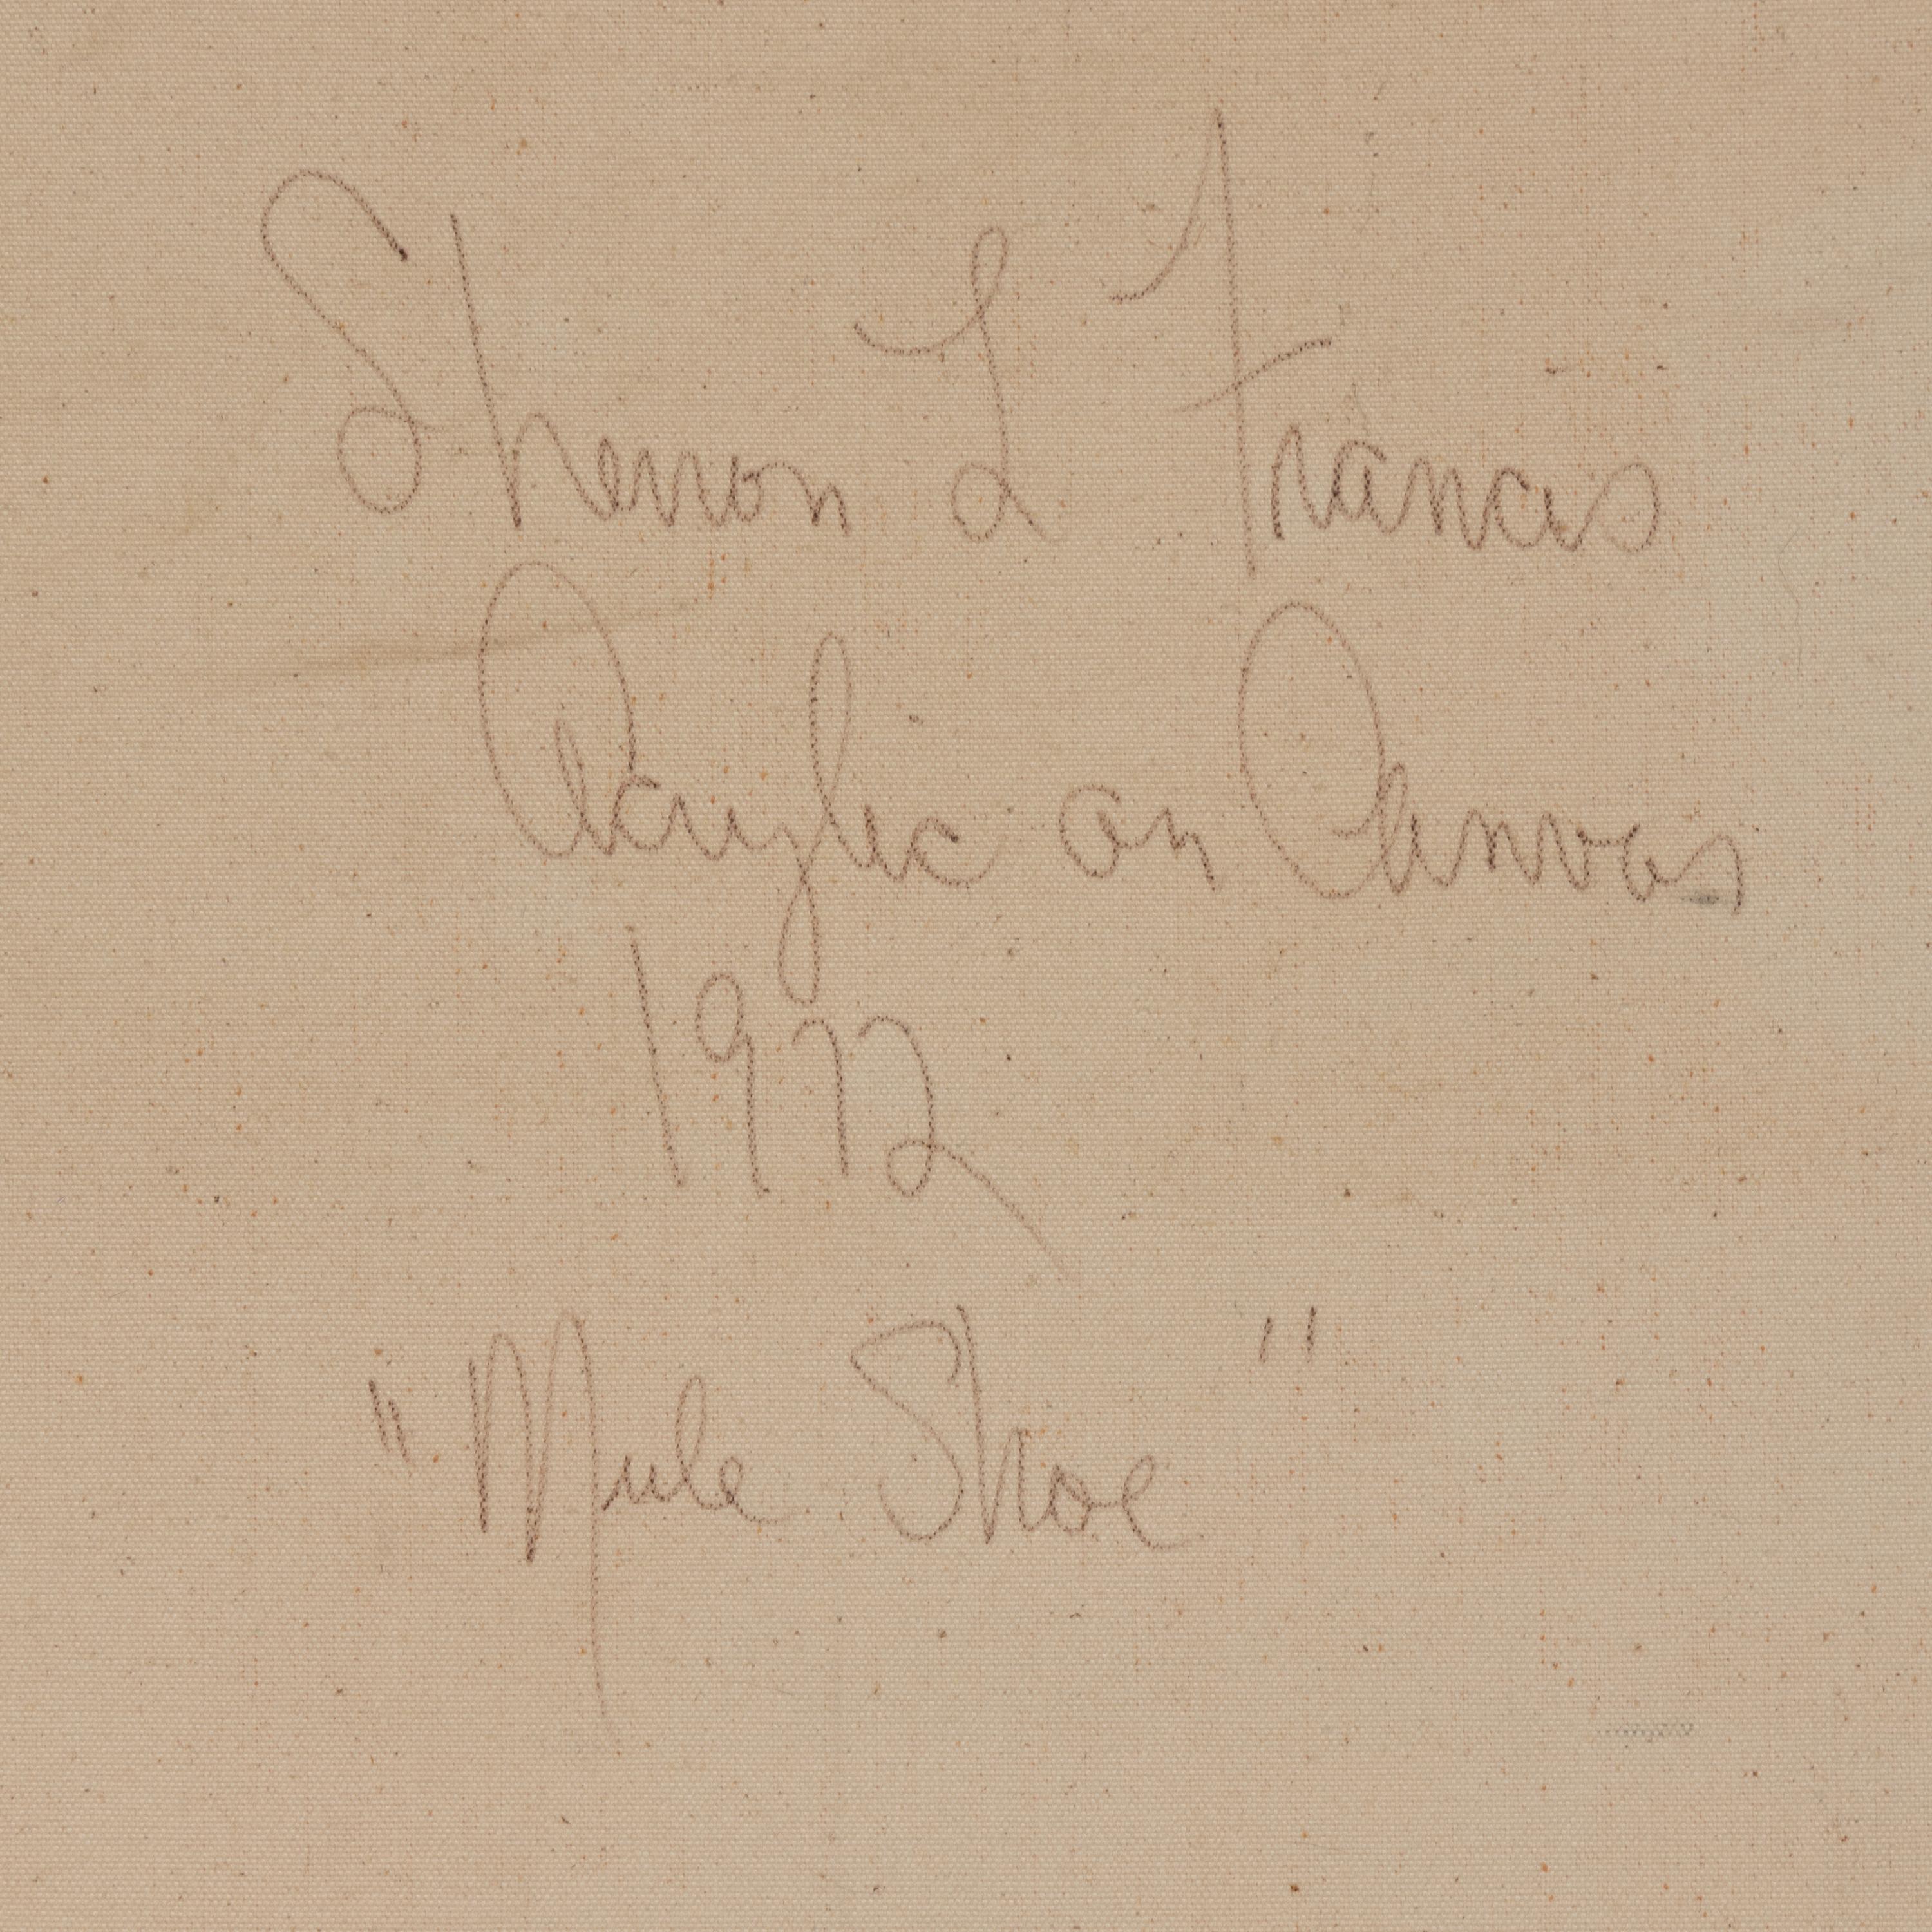 Sherron L Francis
Acrylic on Canvas
1972
"Mule Shoe"